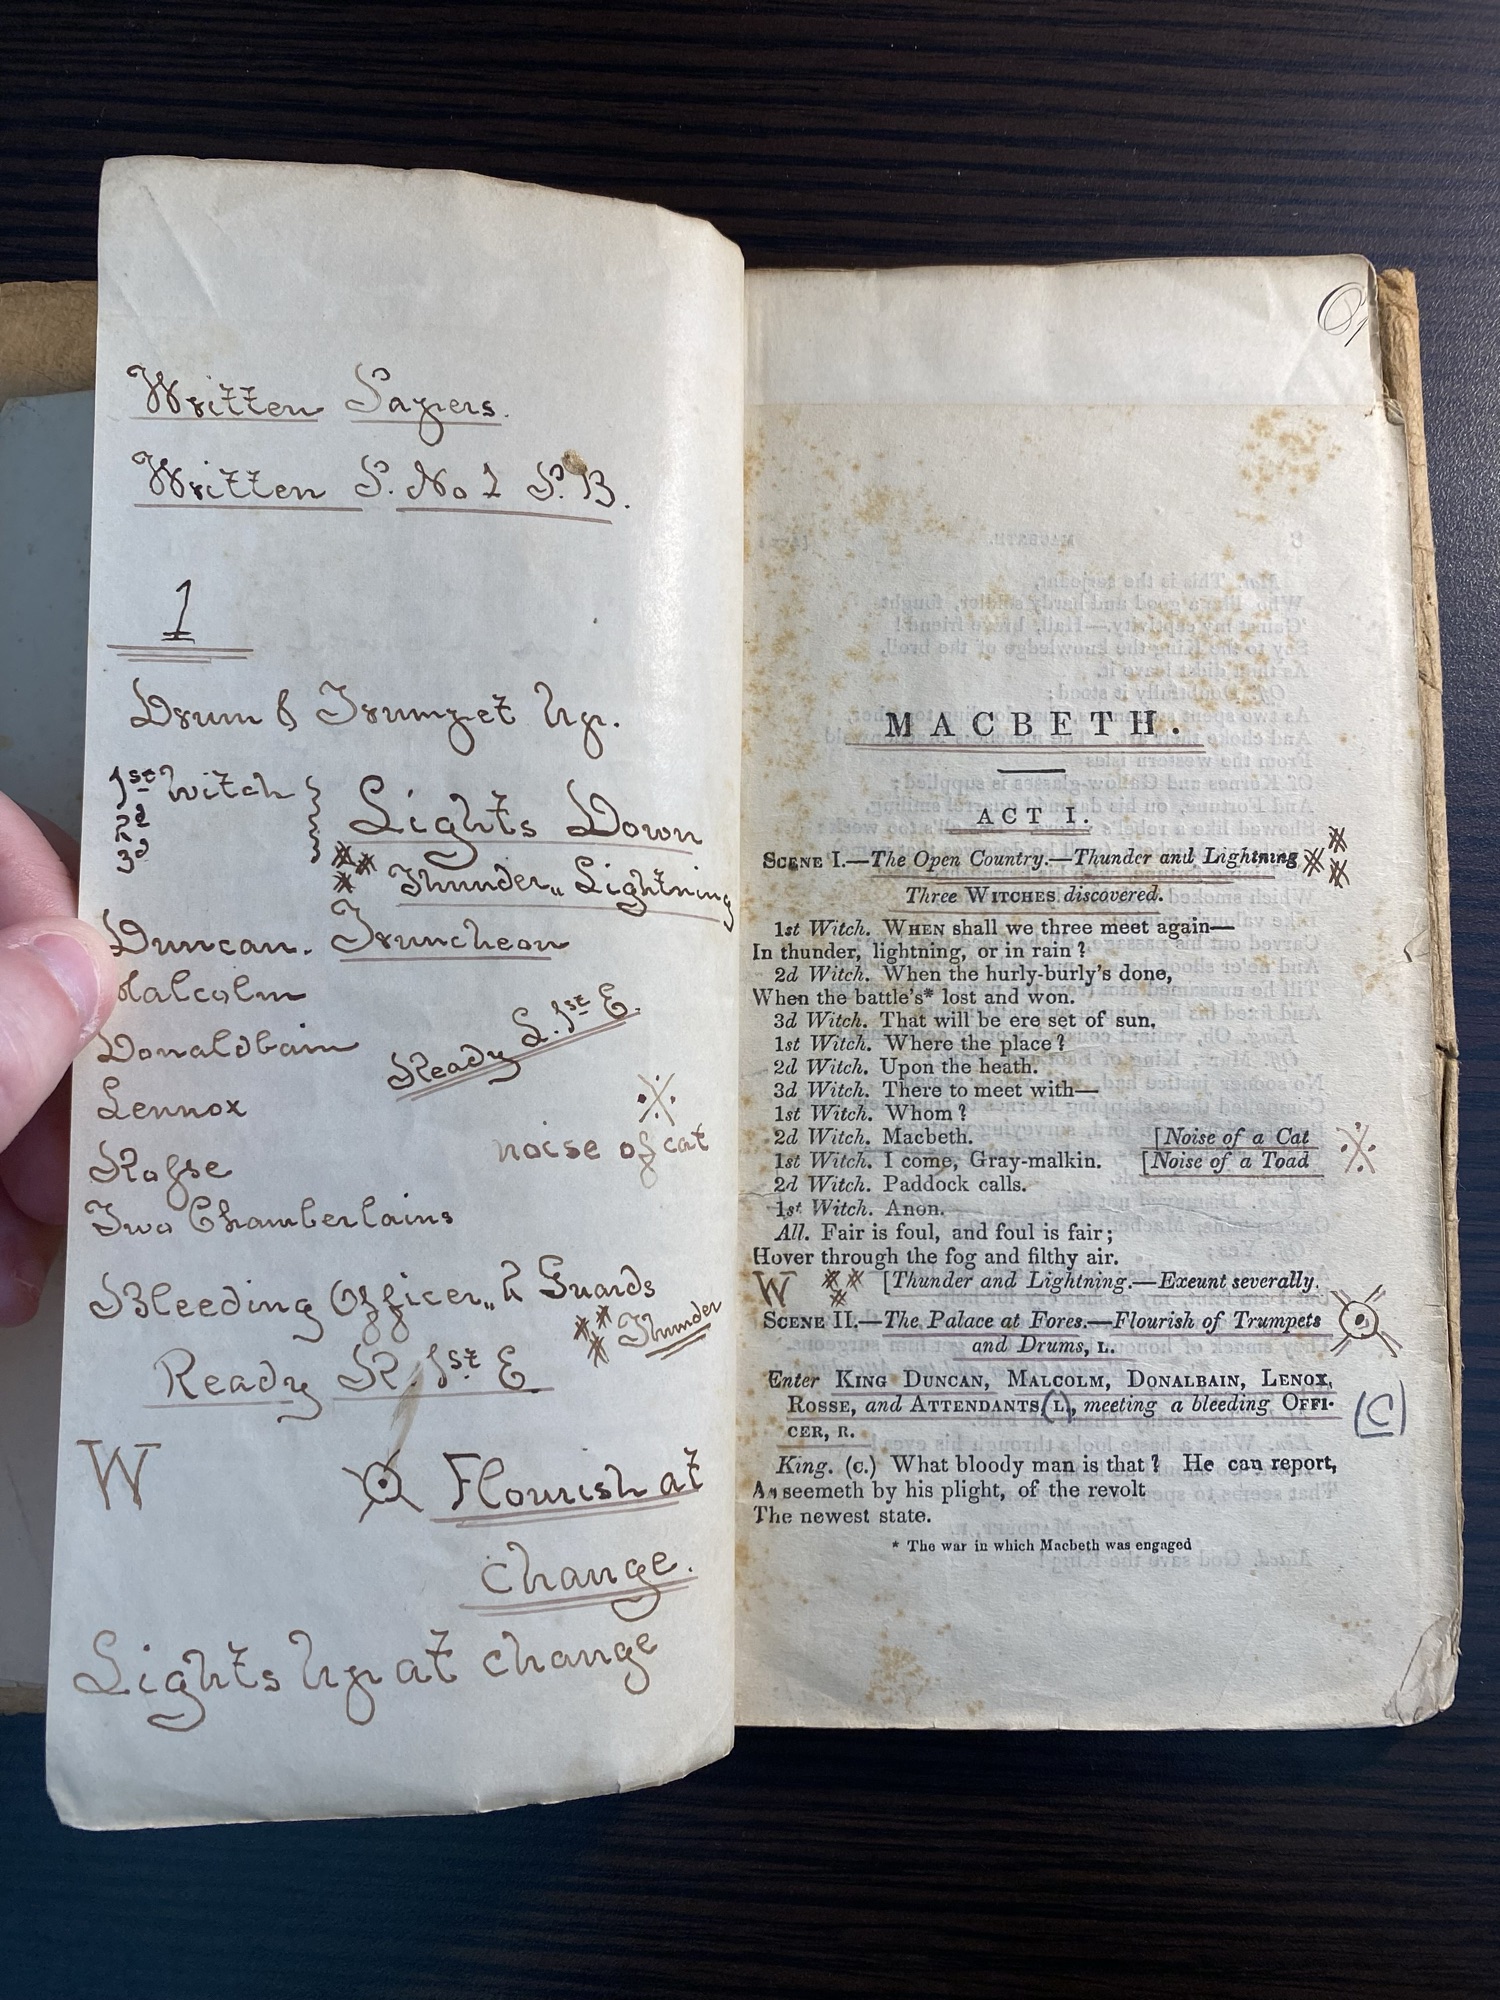 Written Papers.
Written P. No 1 P. B.
1
Drum & Trumpet Up.
1st Witch
2d
3d
Lights Down
Thunder „ Lightning
Duncan. Truncheon
Malcolm
Donaldbain
Ready L. 1st E.
Lennox
noise of cat
Rosse
Two Chamberlains
Bleeding Officer „ 2 Guards
Thunder
Ready R. 1st E.
W
Flourish at
change.
Lights Up at change
MACBETH.
ACT I.
SCENE I.—The Open Country.—Thunder and Lightning
Three WITCHES discovered.
1st Witch. WHEN shall we three meet again—
In thunder, lightning, or in rain?
2d Witch. When the hurly-burly's done,
When the battle's* lost and won.
3d Witch. That will be ere set of sun.
1st Witch. Where the place?
2d Witch. Upon the heath.
3d Witch. There to meet with—
1st Witch. Whom?
2d Witch. Macbeth. [Noise of a Cat
1st Witch. I come, Gray-malkin. [Noise of a Toad
2d Witch. Paddock calls.
1st Witch. Anon.
All. Fair is foul, and foul is fair;
Hover through the fog and filthy air.
W [Thunder and Lightning.—Exeunt severally.
SCENE II.—The Palace at Fores.—Flourish of Trumpets
and Drums, L.
Enter KING DUNCAN, MALCOLM, DONALBAIN, LENOX,
ROSSE, and ATTENDANTS (L), meeting a bleeding OFFI-
CER, R.
King. (C.) What bloody man is that? He can report,
As seemeth by his plight, of the revolt
The newest state.
* The war in which Macbeth was engaged